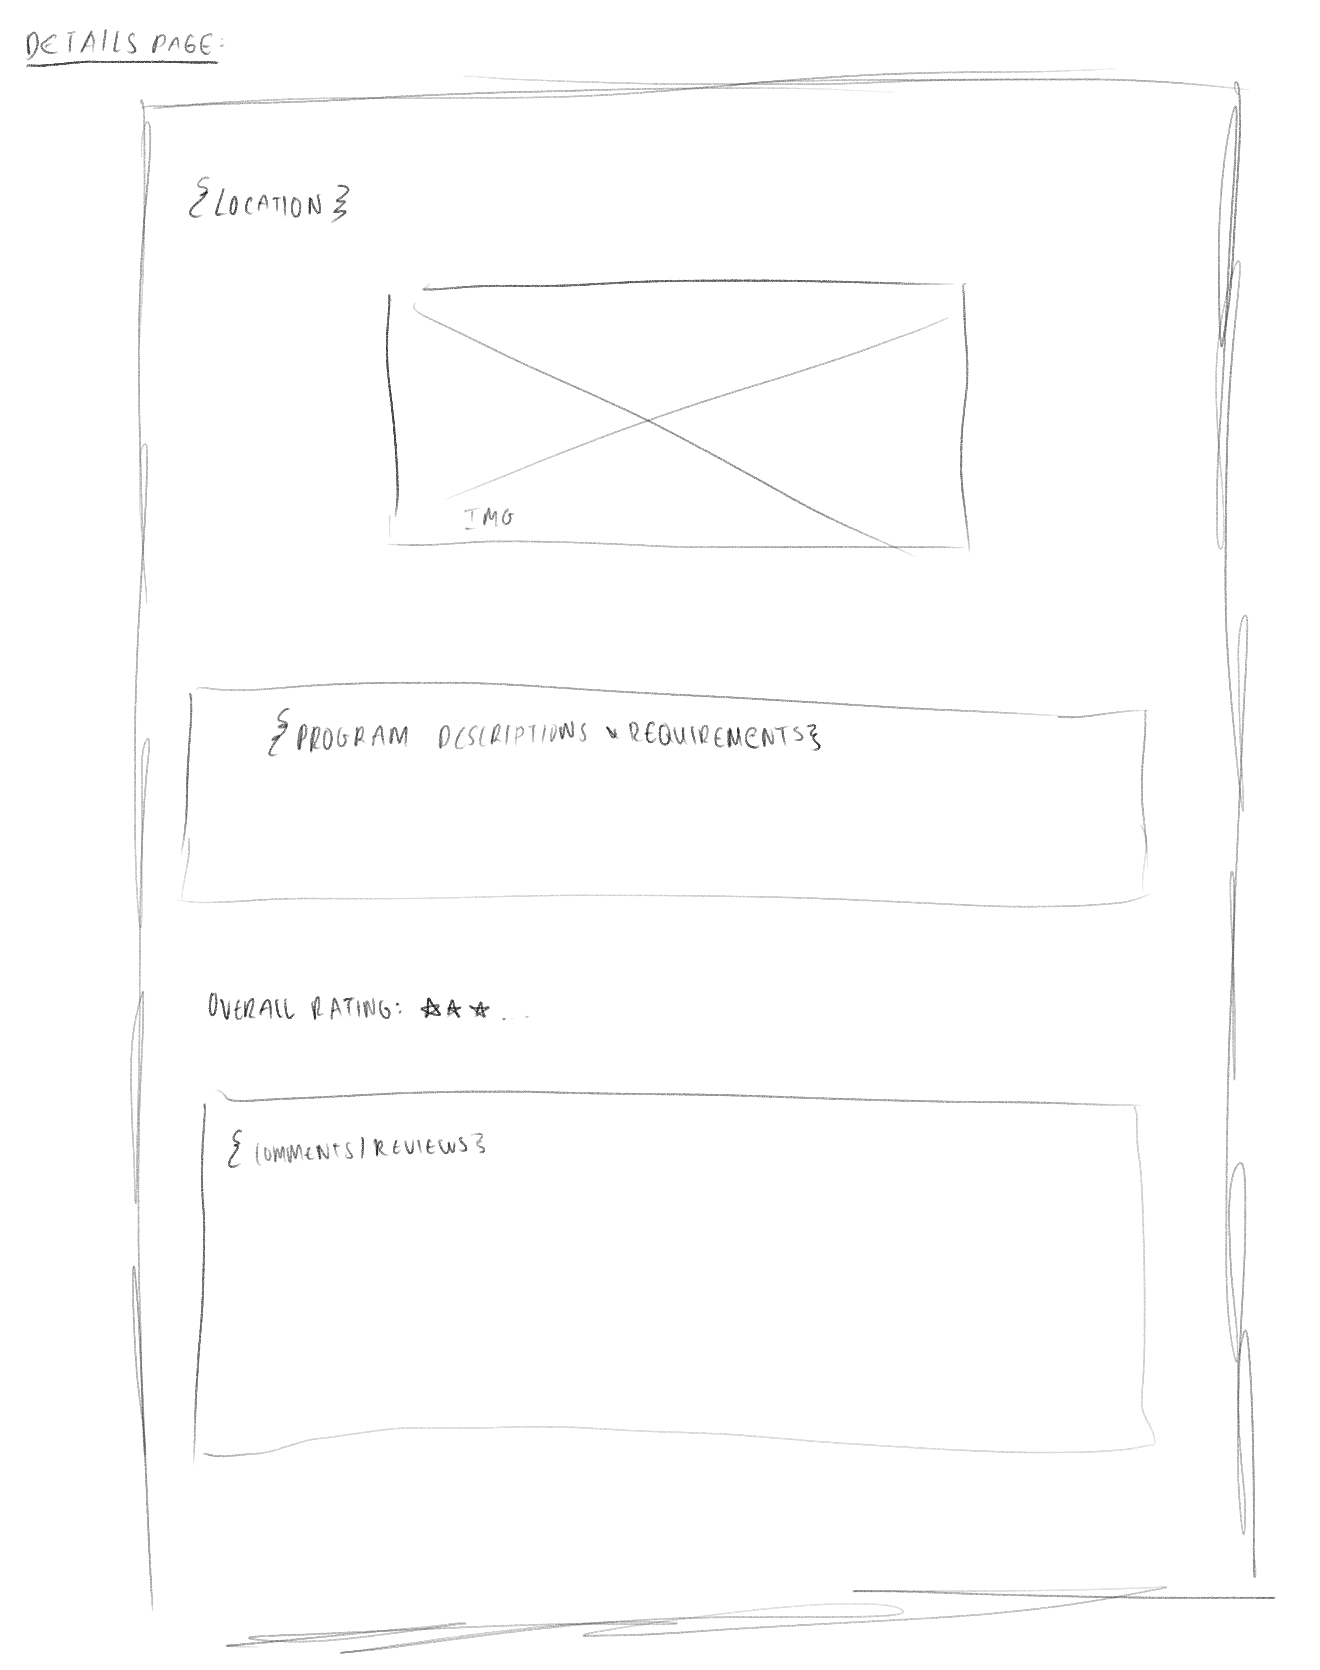 DETAILS PAGE:
{LOCATION}
IMG
{PROGRAM DESCRIPTIONS & REQUIREMENTS}
OVERALL RATING: ★★★...
{COMMENTS/REVIEWS}